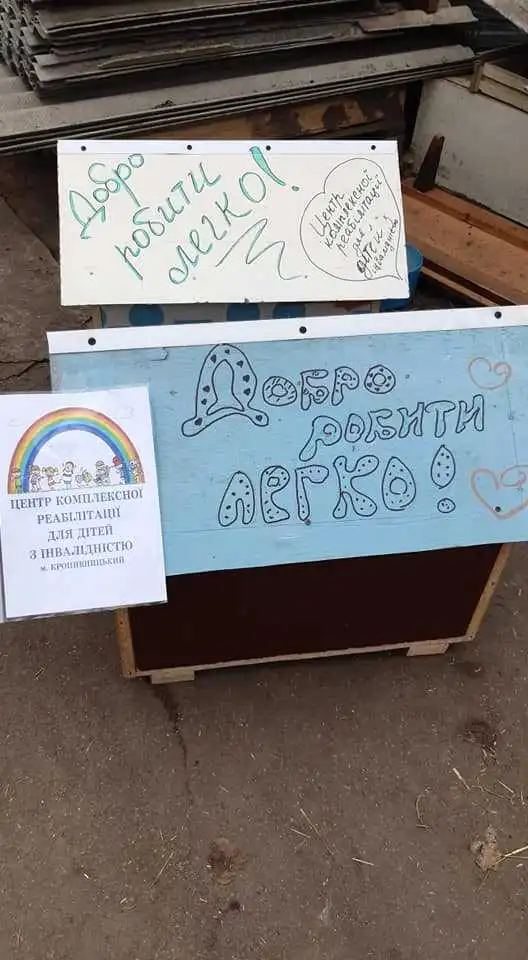 Добро
робити
легко!
Центр
комплексної
реабілітації
для
дітей з
інвалідністю
Добро
робити
легко!
ЦЕНТР КОМПЛЕКСНОЇ
РЕАБІЛІТАЦІЇ
ДЛЯ ДІТЕЙ
З ІНВАЛІДНІСТЮ
м. КРОПИВНИЦЬКИЙ